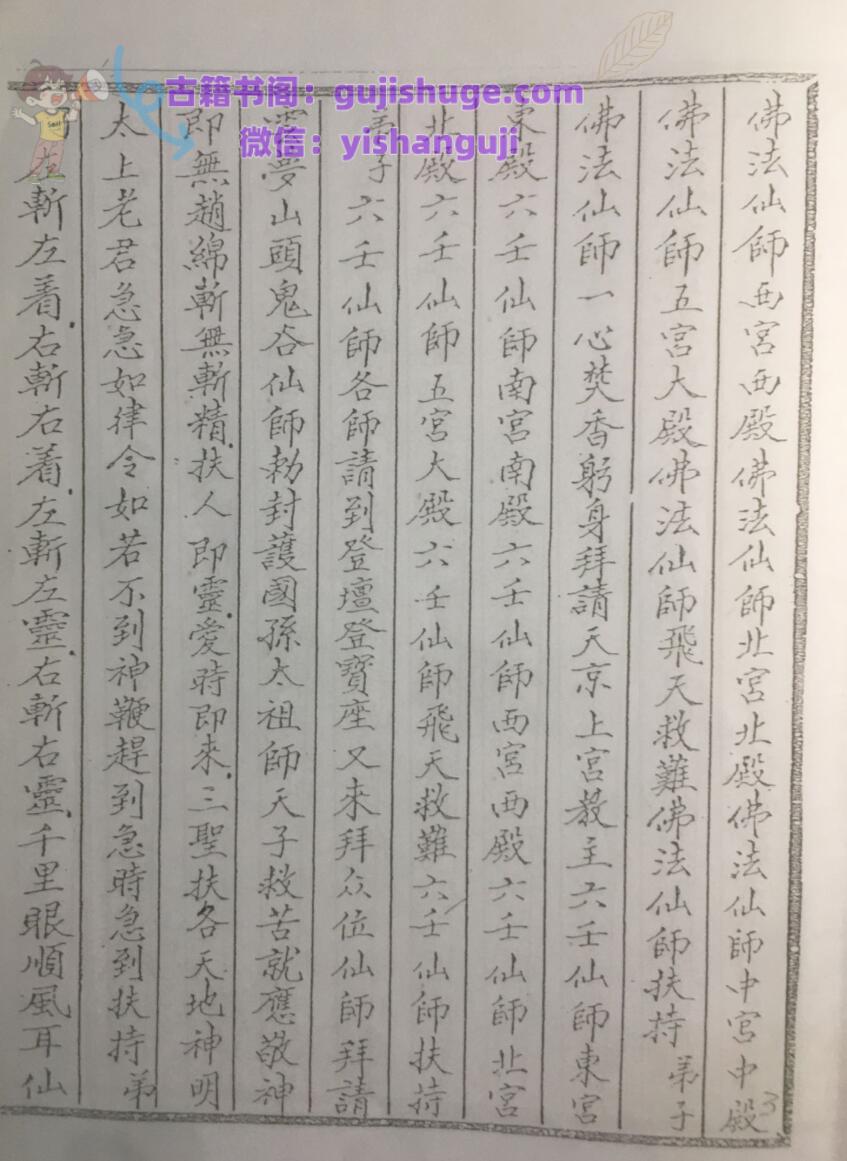 古籍书阁：gujishuge.com
微信：yishanguji
佛法仙師西宮西殿佛法仙師北宮北殿佛法仙師中宮中殿
佛法仙師五宮大殿佛法仙師飛天救難佛法仙師扶持弟子
佛法仙師一心焚香躬身拜請天京上宮教主六壬仙師東宮
東殿六壬仙師南宮南殿六壬仙師西宮西殿六壬仙師北宮
北殿六壬仙師五宮大殿六壬仙師飛天救難六壬仙師扶持
弟子六壬仙師各師請到登壇登寶座又來拜众位仙師拜請
靈夢山頭鬼谷仙師勅封護國孫太祖師天子救苦就應敬神
即無趙綿斬無斬精扶人即靈愛時即來三聖扶各天地神明
太上老君急急如律令如若不到神鞭趕到急時急到扶持弟
左斬左着右斬右着左斬左靈右斬右靈千里眼順風耳仙
3